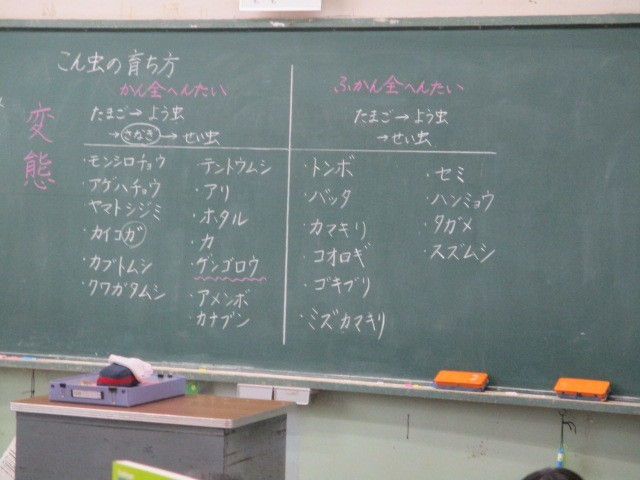 こん虫の育ち方
変態
かん全へんたい
たまご→よう虫
→さなぎ→せい虫
・モンシロチョウ
・アゲハチョウ
ヤマトシジミ
・カイコガ
・カブトムシ
・クワガタムシ
テントウムシ
・アリ
・ホタル
・カ
・ゲンゴロウ
・アメンボ
・カナブン
ふかん全へんたい
たまご→よう虫
→せい虫
・トンボ
・バッタ
・カマキリ
・コオロギ
・ゴキブリ
・ミズカマキリ
・セミ
・ハンミョウ
・タガメ
・スズムシ